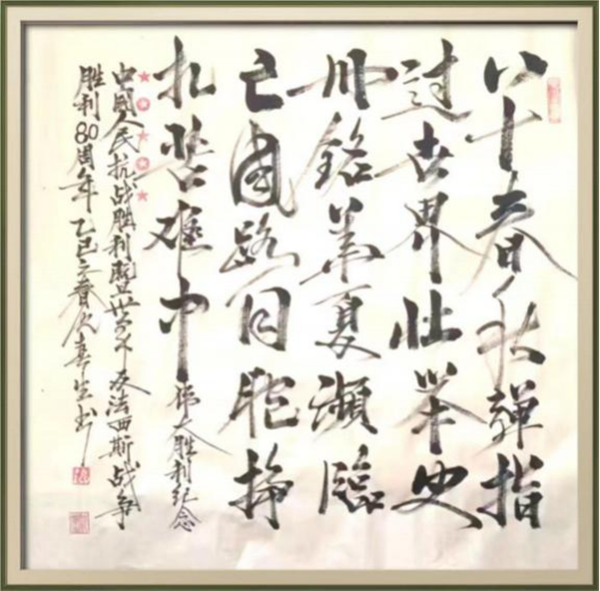 八十春秋彈指
过世界壮举史
册銘華夏瀕臨
亡國路同胞挣
扎苦难中
伟大胜利纪念
中國人民抗战胜利暨世界反法西斯战争
胜利80周年 乙巳之春 生书